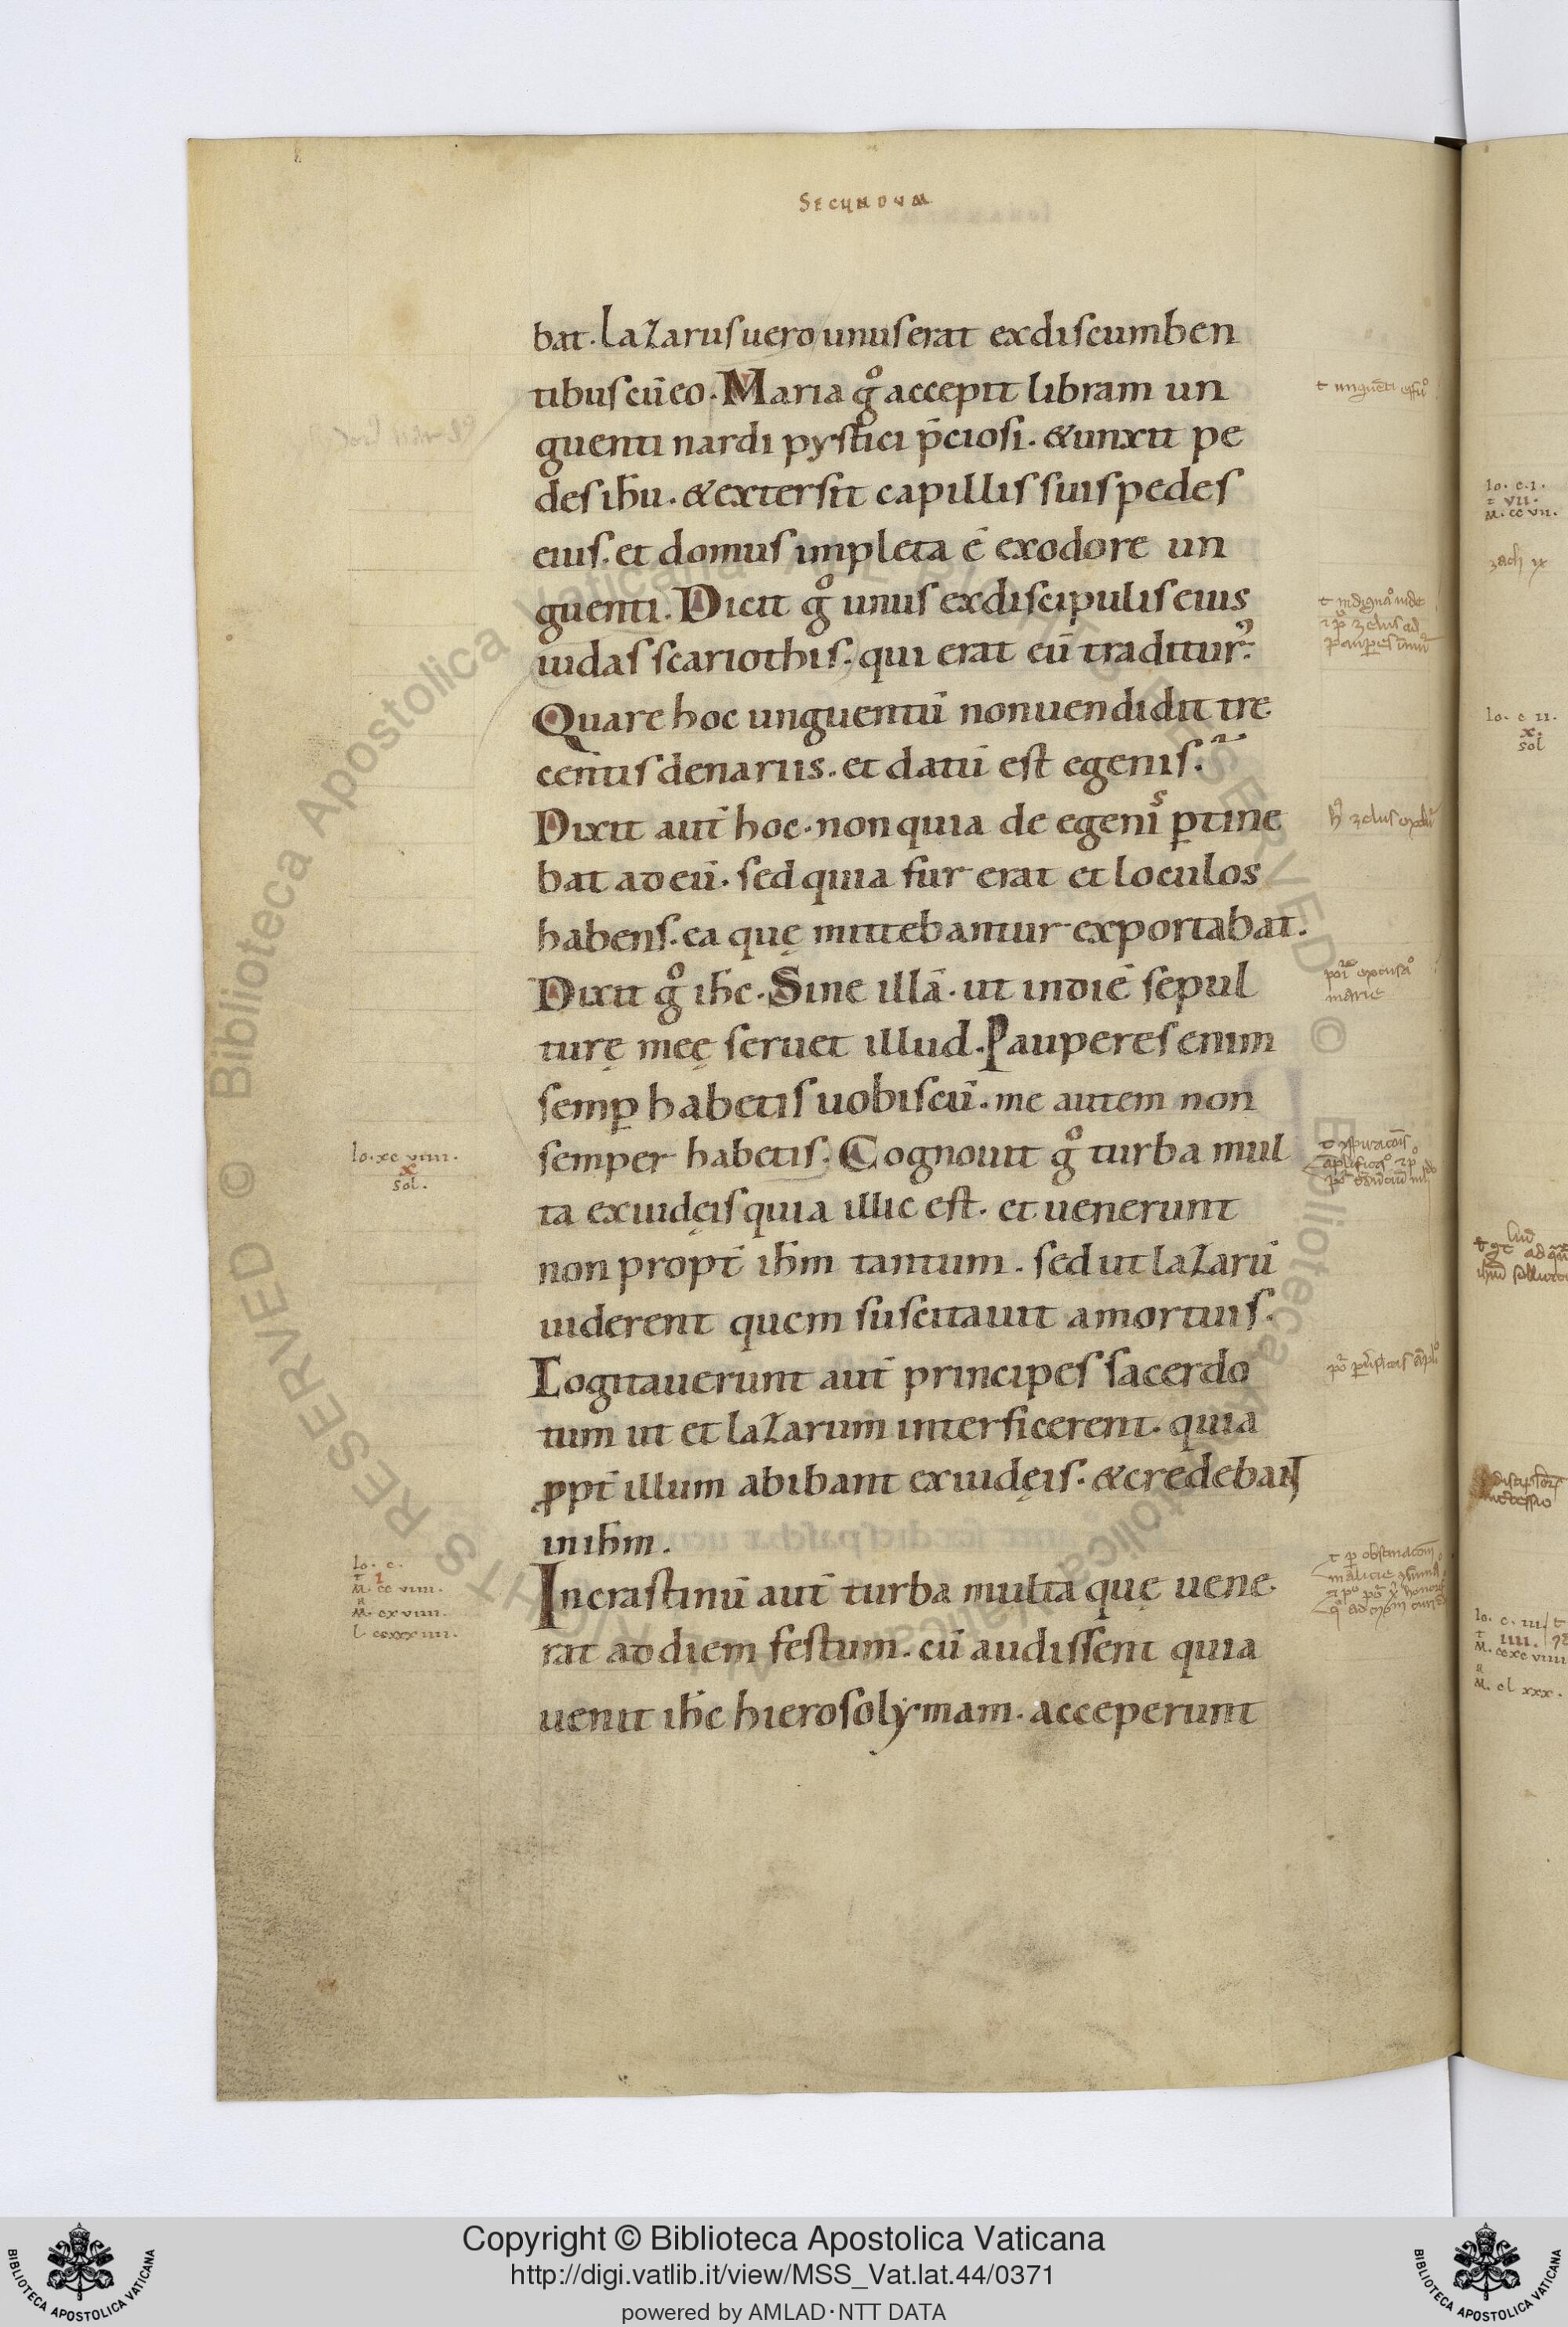 SECUNDUM
bat. Lazarus uero unus erat ex discumben
tibus cū eo. Maria gͦ accepit libram un
guenti nardi pystici p̄ciosi. & unxit pe
des ih̄u. & extersit capillis suis pedes
eius. et domus impleta ē ex odore un
guenti. Dicit gͦ unus ex discipulis eius
iudas scariothis. qui erat eū traditurꝰ.
Quare hoc unguentū non uendidit tre
centis denariis. et datū est egenis.
Dixit aut̄ hoc. non quia de egenis ꝑtine
bat ad eū. sed quia fur erat et loculos
habens. ea quę mittebantur exportabat.
Dixit gͦ ih̄c. Sine illā. ut in diē sepul
turę meę seruet illud. Pauperes enim
semꝑ habetis uobiscū. me autem non
semper habetis. Cognouit gͦ turba mul
ta ex iudęis quia illic est. et uenerunt
non propt̄ ih̄m tantum. sed ut lazarū
uiderent quem suscitauit a mortuis.
Cogitauerunt aut̄ principes sacerdo
tum ut et lazarum interficerent. quia
ꝓpt̄ illum abibant ex iudęis. & credebant
in ih̄m.
In crastinū aut̄ turba multa quę uene
rat ad diem festum. cū audissent quia
uenit ih̄c hierosolymam. acceperunt
Io. xc viiii.
x
sol.
Io. c.
I
M. cc viiii.
M. cx viiii.
L ccxxx iiii.
Io. c. I.
VII.
M. cc vii.
zach ix
Io. c II.
x.
sol
Io. c. III.
IIII.
M. ccxc viiii
M. cl xxx.
Copyright © Biblioteca Apostolica Vaticana
http://digi.vatlib.it/view/MSS_Vat.lat.44/0371
powered by AMLAD·NTT DATA
BIBLIOTECA APOSTOLICA VATICANA
BIBLIOTECA APOSTOLICA VATICANA